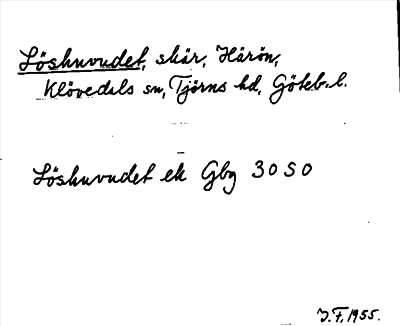 Löshuvudet, skär, Härön,
Klövedals sn, Tjörns hd, Göteb. l.
Löshuvudet ek Gbg 30 SO
J.F. 1955.